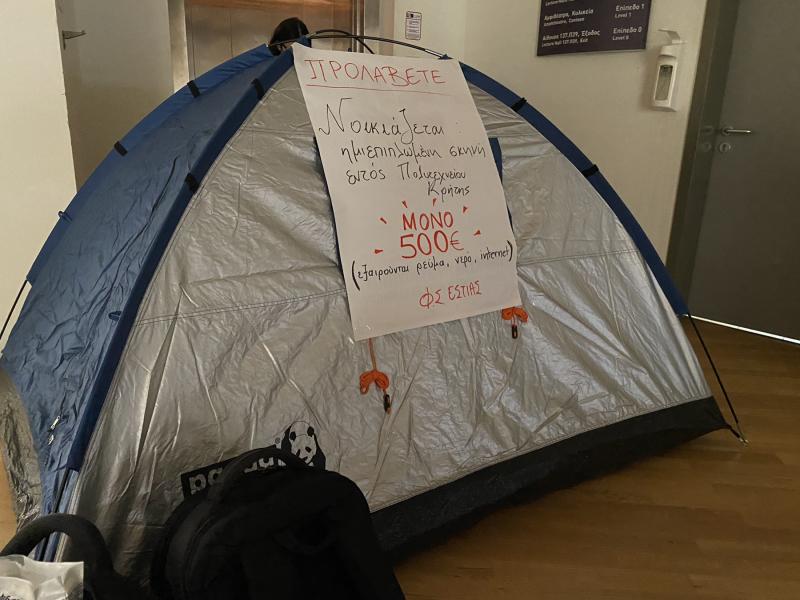 Αμφιθέατρο, Κυλικείο
Amphitheatre, Canteen
Επίπεδο 1
Level 1
Αίθουσα 137.Π39, Έξοδος
Lecture Hall 137.Π39, Exit
Επίπεδο 0
Level 0
ΠΡΟΛΑΒΕΤΕ
Νοικιάζεται :
ημιεπιπλωμένη σκηνή
εντός Πολυτεχνείου
Κρήτης
ΜΟΝΟ
500€
(εξαιρούνται ρεύμα, νερο, internet)
ΦΣ ΕΣΤΙΑΣ
panda